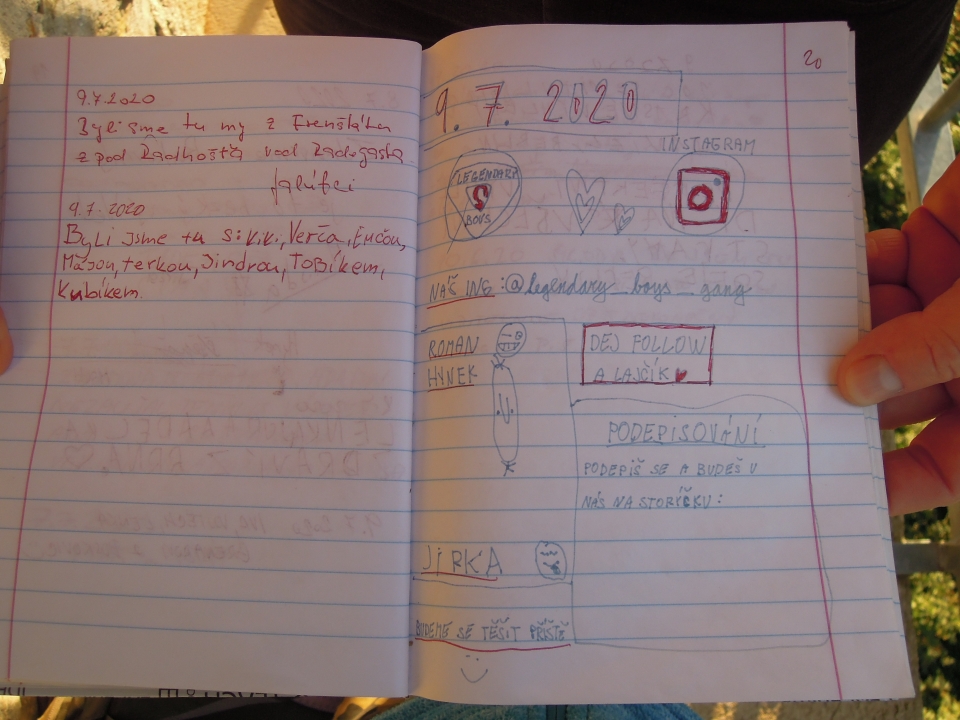 9.7.2020
Byli jsme tu my z Frenštátu
z pod Radhoště vod Radegasta
9.7.2020
Byli jsme tu s: k.k., Verča, Eničou,
Májou, terkou, Jindrou, Tobíkem,
Kubíkem.
20
9. 7. 2020
INSTAGRAM
LEGENDARY
S
BOYS
NÁŠ ING :@legendary_boys_gang
ROMAN
HYNEK
DEJ FOLLOW
A LAJČÍK
PODEPISOVÁNÍ
PODEPIŠ SE A BUDEŠ U
NÁS NA STORÍČKU:
JIRKA
BUDEME SE TĚŠIT PŘÍŠTĚ